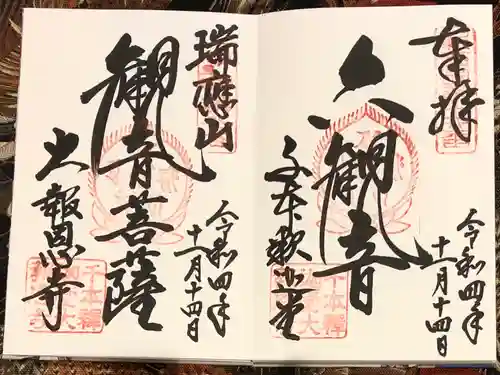 奉拝
令和四年
十一月十四日
六観音
千本釈迦堂
瑞應山
令和四年
十一月十四日
観音菩薩
大報恩寺